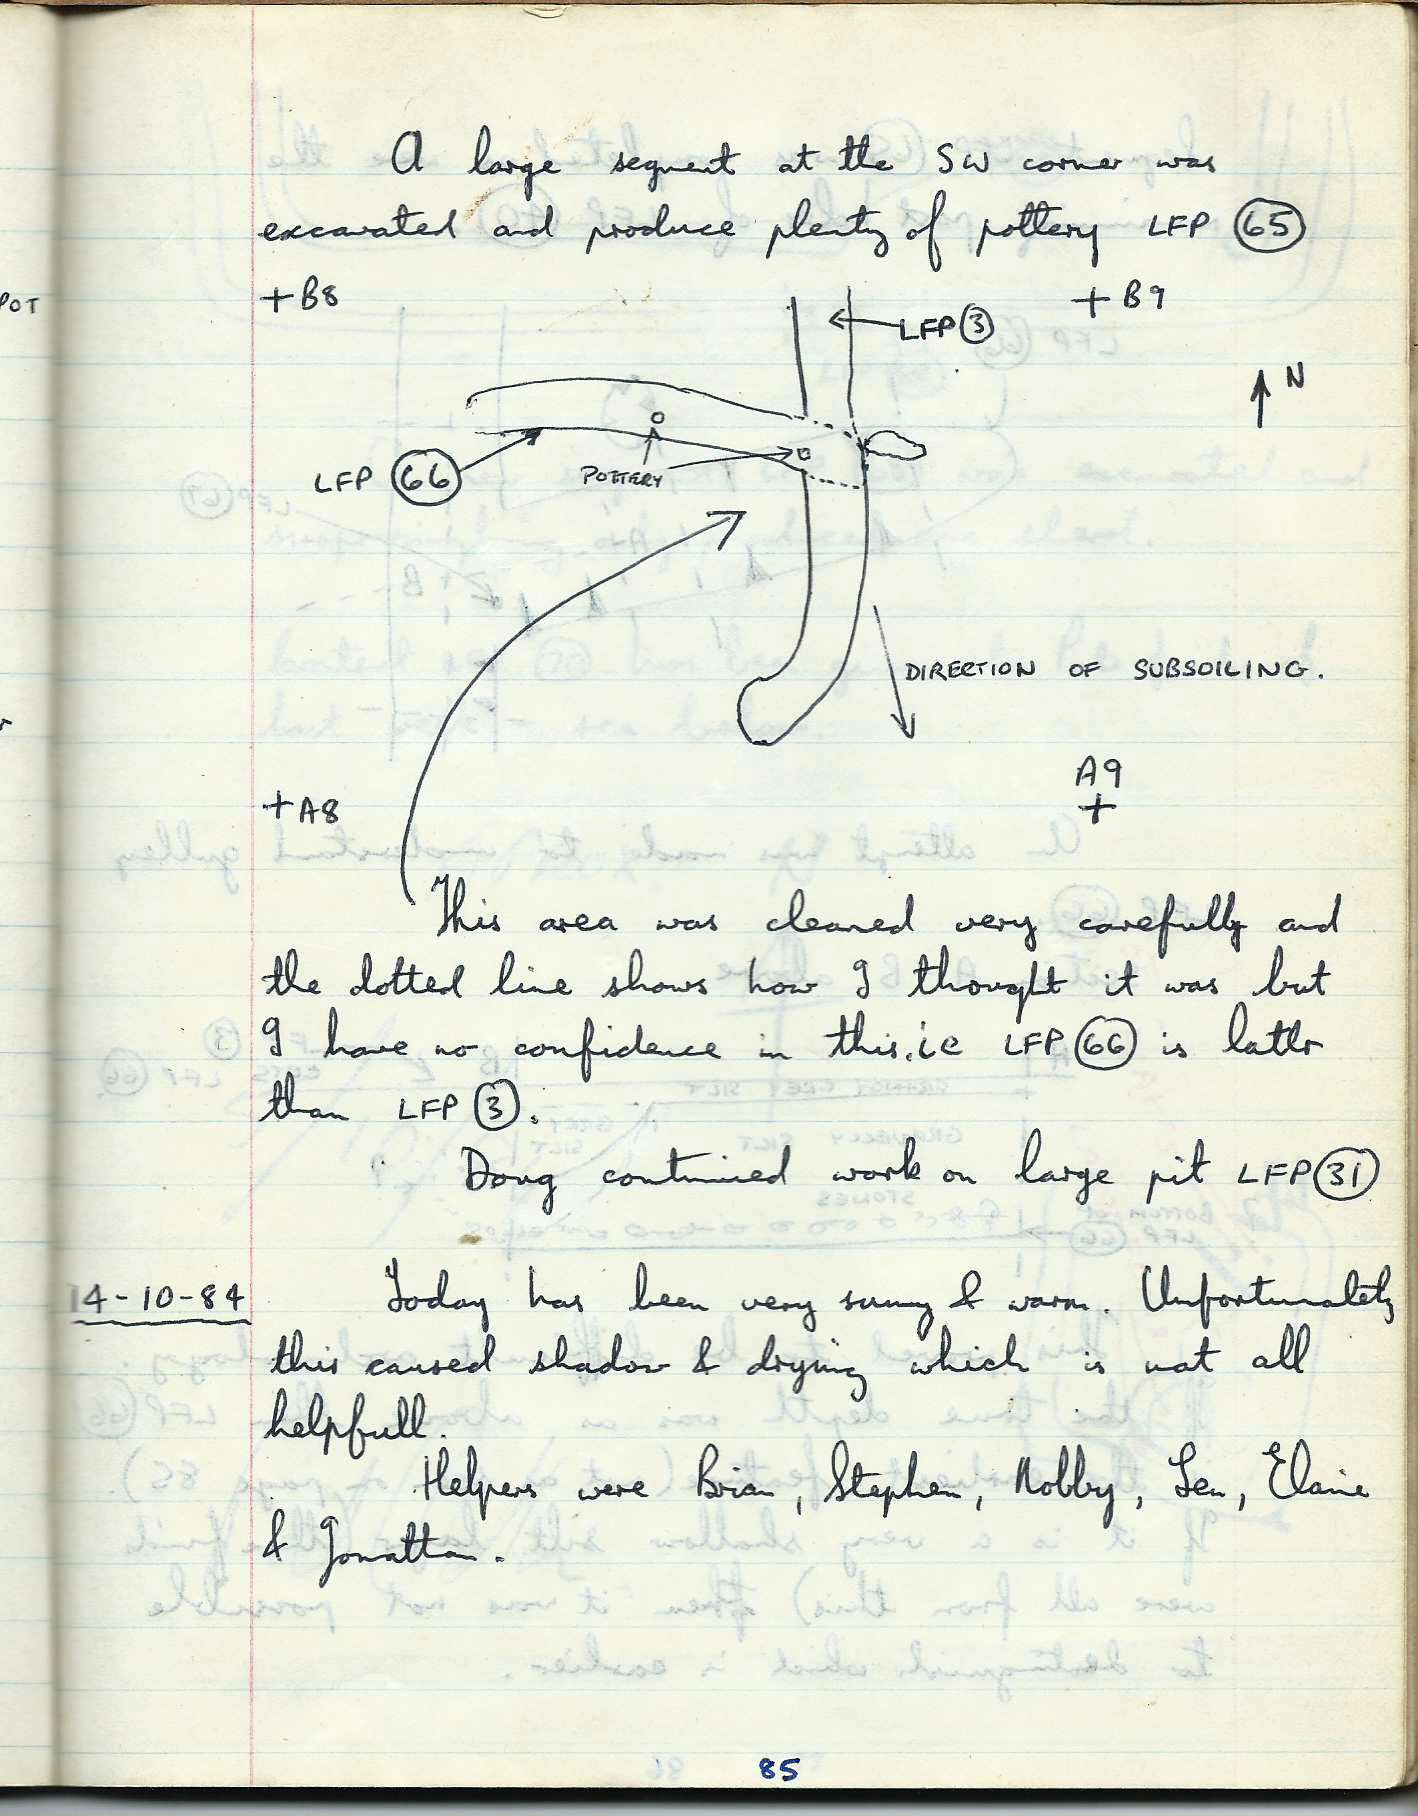 A large segment at the SW corner was
excavated and produce plenty of pottery LFP 65
+ B8
+ B9
LFP 3
N
LFP 66
POTTERY
DIRECTION OF SUBSOILING.
A9
+
+ A8
This area was cleaned very carefully and
the dotted line shows how I thought it was but
I have no confidence in this. ie LFP 66 is latter
than LFP 3.
Doug continued work on large pit LFP 31
14-10-84 Today has been very sunny & warm. Unfortunately
this caused shadow & drying which is not all
helpfull.
Helpers were Brian, Stephen, Nobby, Len, Elaine
& Jonathan.
85
POT